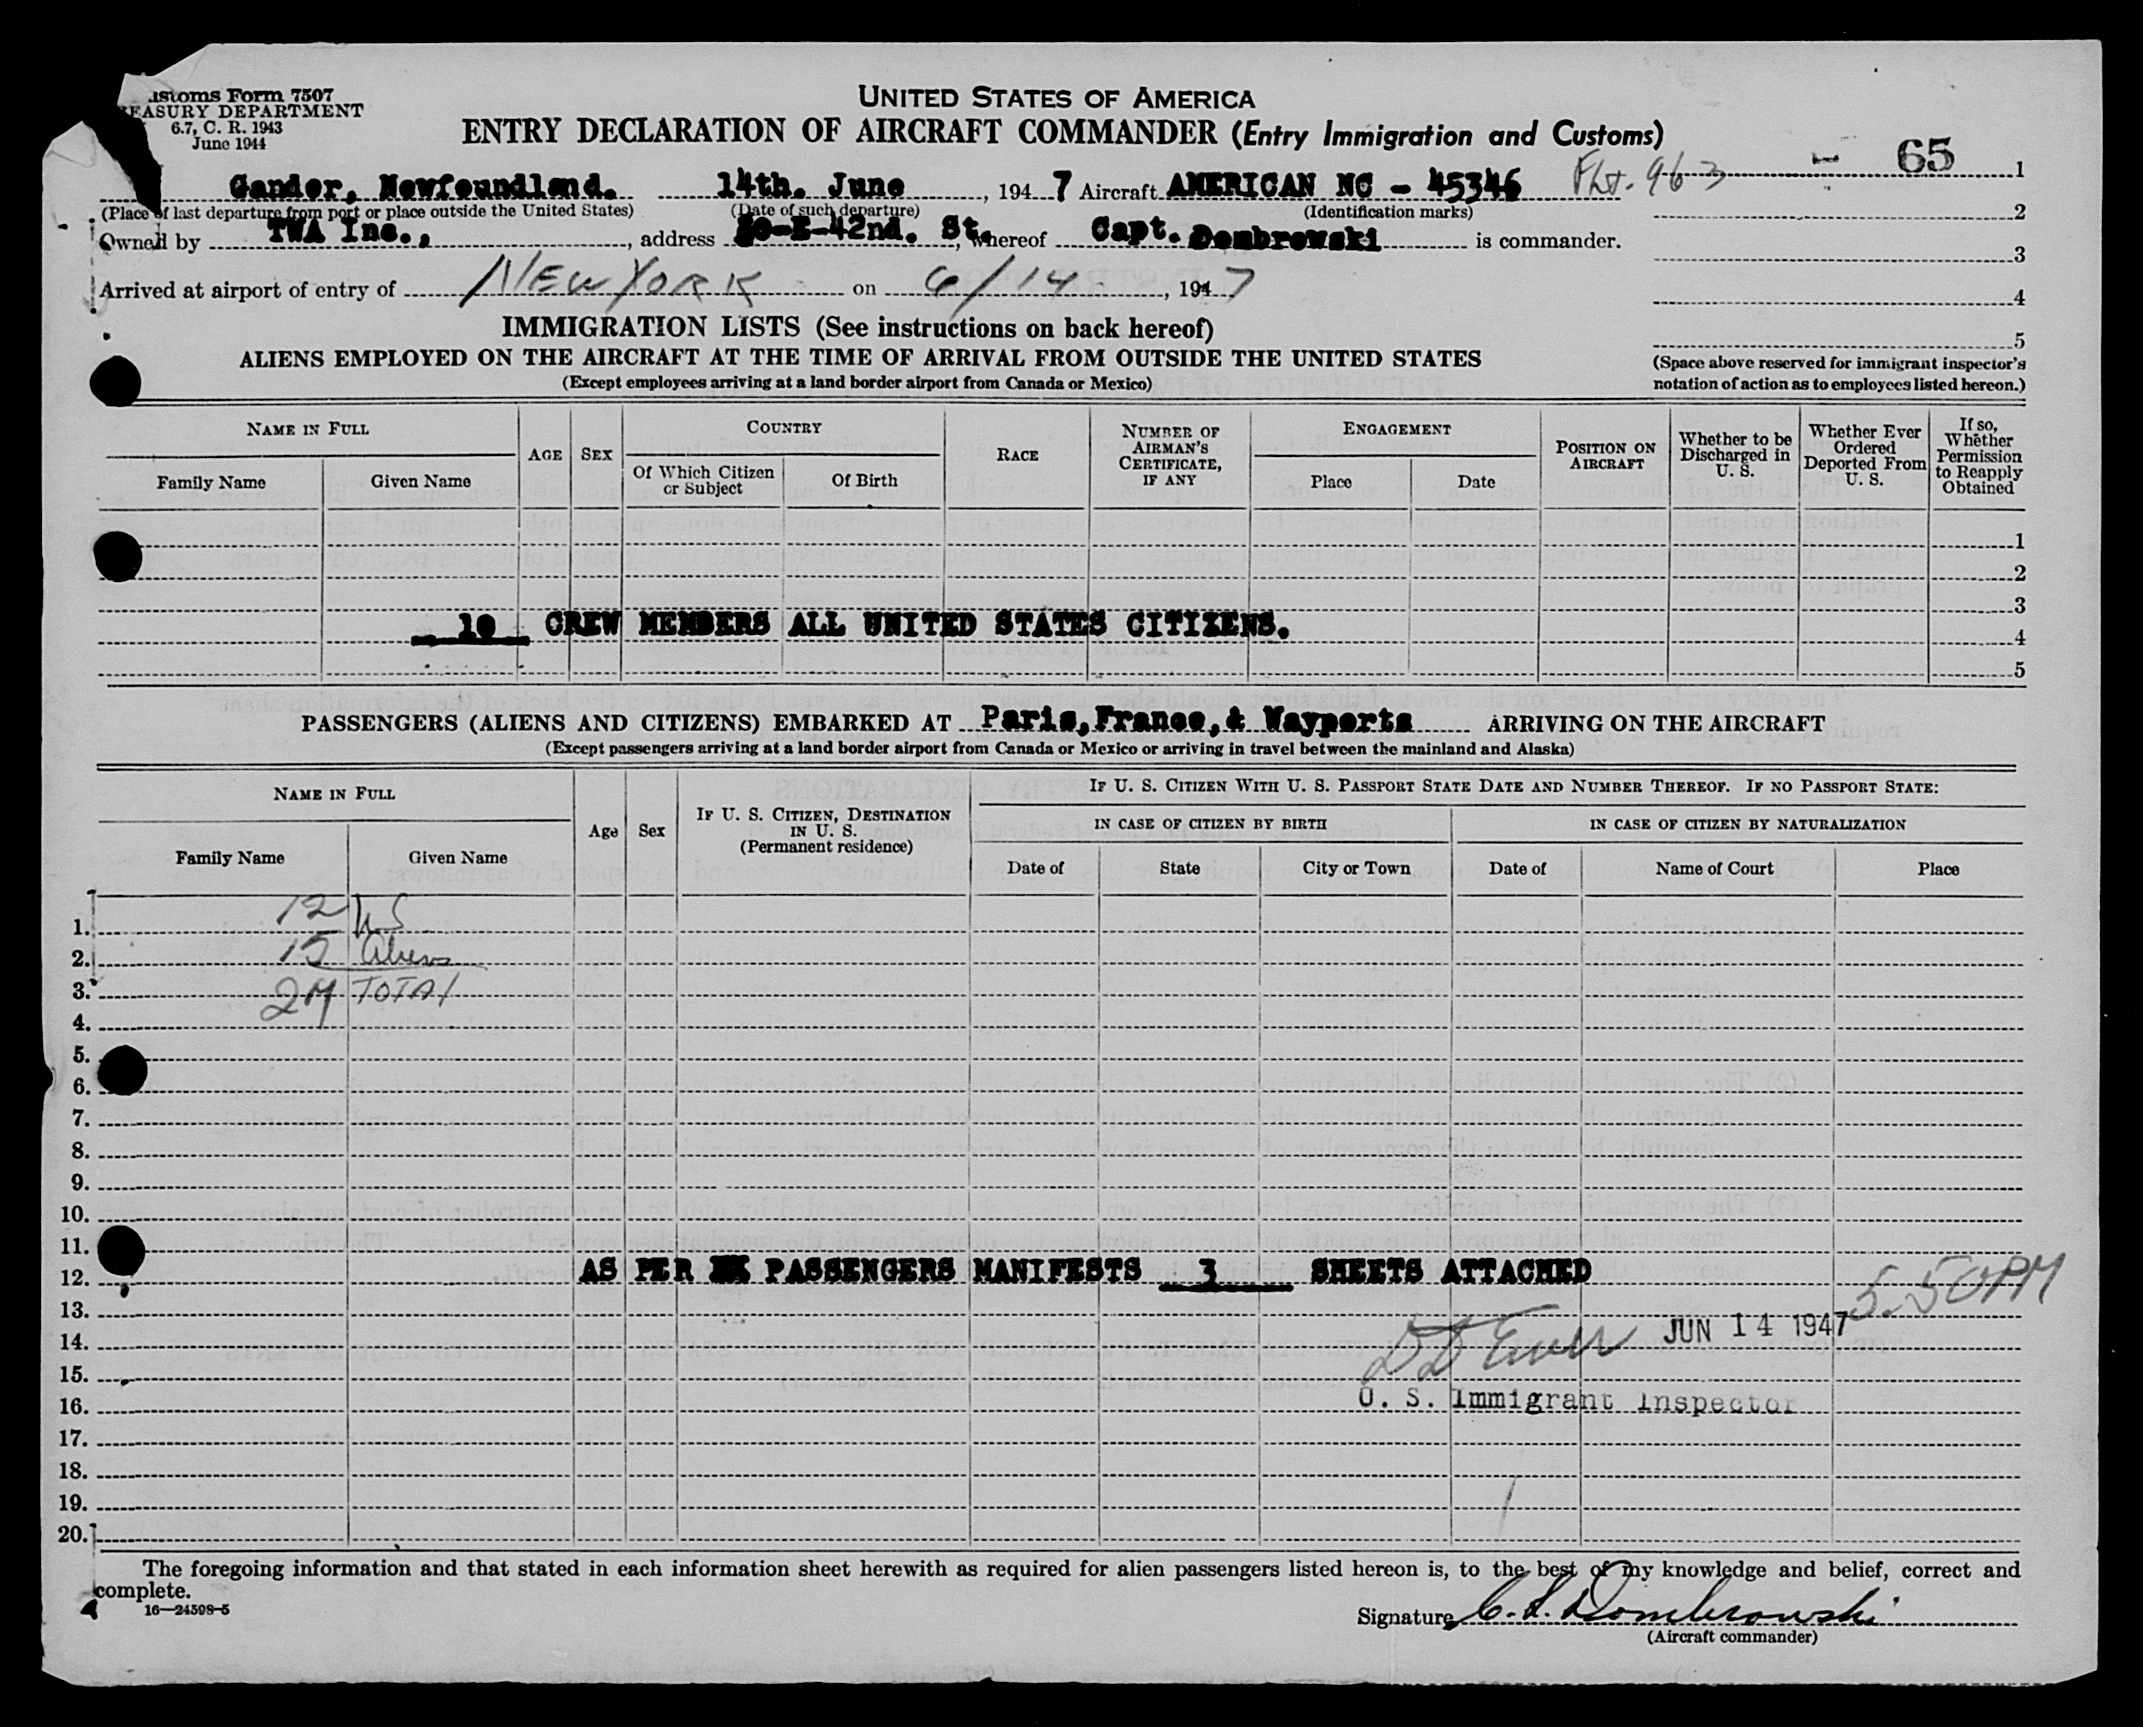 ustoms Form 7507
REASURY DEPARTMENT
6.7, C. R. 1943
June 1944
UNITED STATES OF AMERICA
ENTRY DECLARATION OF AIRCRAFT COMMANDER (Entry Immigration and Customs)
65
Gander, Newfoundland. 14th. June, 1947 Aircraft AMERICAN NC - 45346 Flt. 963 1
(Place of last departure from port or place outside the United States) (Date of such departure) (Identification marks) 2
Owned by TWA Inc., address 60-E-42nd. St., whereof Capt. Dombrowski is commander.
3
Arrived at airport of entry of NEW YORK on 6/14, 1947
4
IMMIGRATION LISTS (See instructions on back hereof)
5
ALIENS EMPLOYED ON THE AIRCRAFT AT THE TIME OF ARRIVAL FROM OUTSIDE THE UNITED STATES
(Except employees arriving at a land border airport from Canada or Mexico)
(Space above reserved for immigrant inspector's
notation of action as to employees listed hereon.)
NAME IN FULL
Family Name
Given Name
AGE
SEX
COUNTRY
Of Which Citizen
or Subject
Of Birth
RACE
NUMBER OF
AIRMAN'S
CERTIFICATE,
IF ANY
ENGAGEMENT
Place
Date
POSITION ON
AIRCRAFT
Whether to be
Discharged in
U. S.
Whether Ever
Ordered
Deported From
U. S.
If so,
Whether
Permission
to Reapply
Obtained
1
2
3
10 CREW MEMBERS ALL UNITED STATES CITIZENS.
4
5
PASSENGERS (ALIENS AND CITIZENS) EMBARKED AT Paris, France, & Wayports ARRIVING ON THE AIRCRAFT
(Except passengers arriving at a land border airport from Canada or Mexico or arriving in travel between the mainland and Alaska)
NAME IN FULL
Family Name
Given Name
Age
Sex
IF U. S. CITIZEN, DESTINATION
IN U. S.
(Permanent residence)
IF U. S. CITIZEN WITH U. S. PASSPORT STATE DATE AND NUMBER THEREOF. IF NO PASSPORT STATE:
IN CASE OF CITIZEN BY BIRTH
IN CASE OF CITIZEN BY NATURALIZATION
Date of
State
City or Town
Date of
Name of Court
Place
1. 12 US
2. 15 aliens
3. 27 TOTAL
4.
5.
6.
7.
8.
9.
10.
11.
12. AS PER PASSENGERS MANIFESTS 3 SHEETS ATTACHED
5.50PM
13.
14. JUN 14 1947
15.
16. U. S. Immigrant Inspector
17.
18.
19.
20.
The foregoing information and that stated in each information sheet herewith as required for alien passengers listed hereon is, to the best of my knowledge and belief, correct and
complete.
16—24598-5
Signature C. S. Dombrowski
(Aircraft commander)